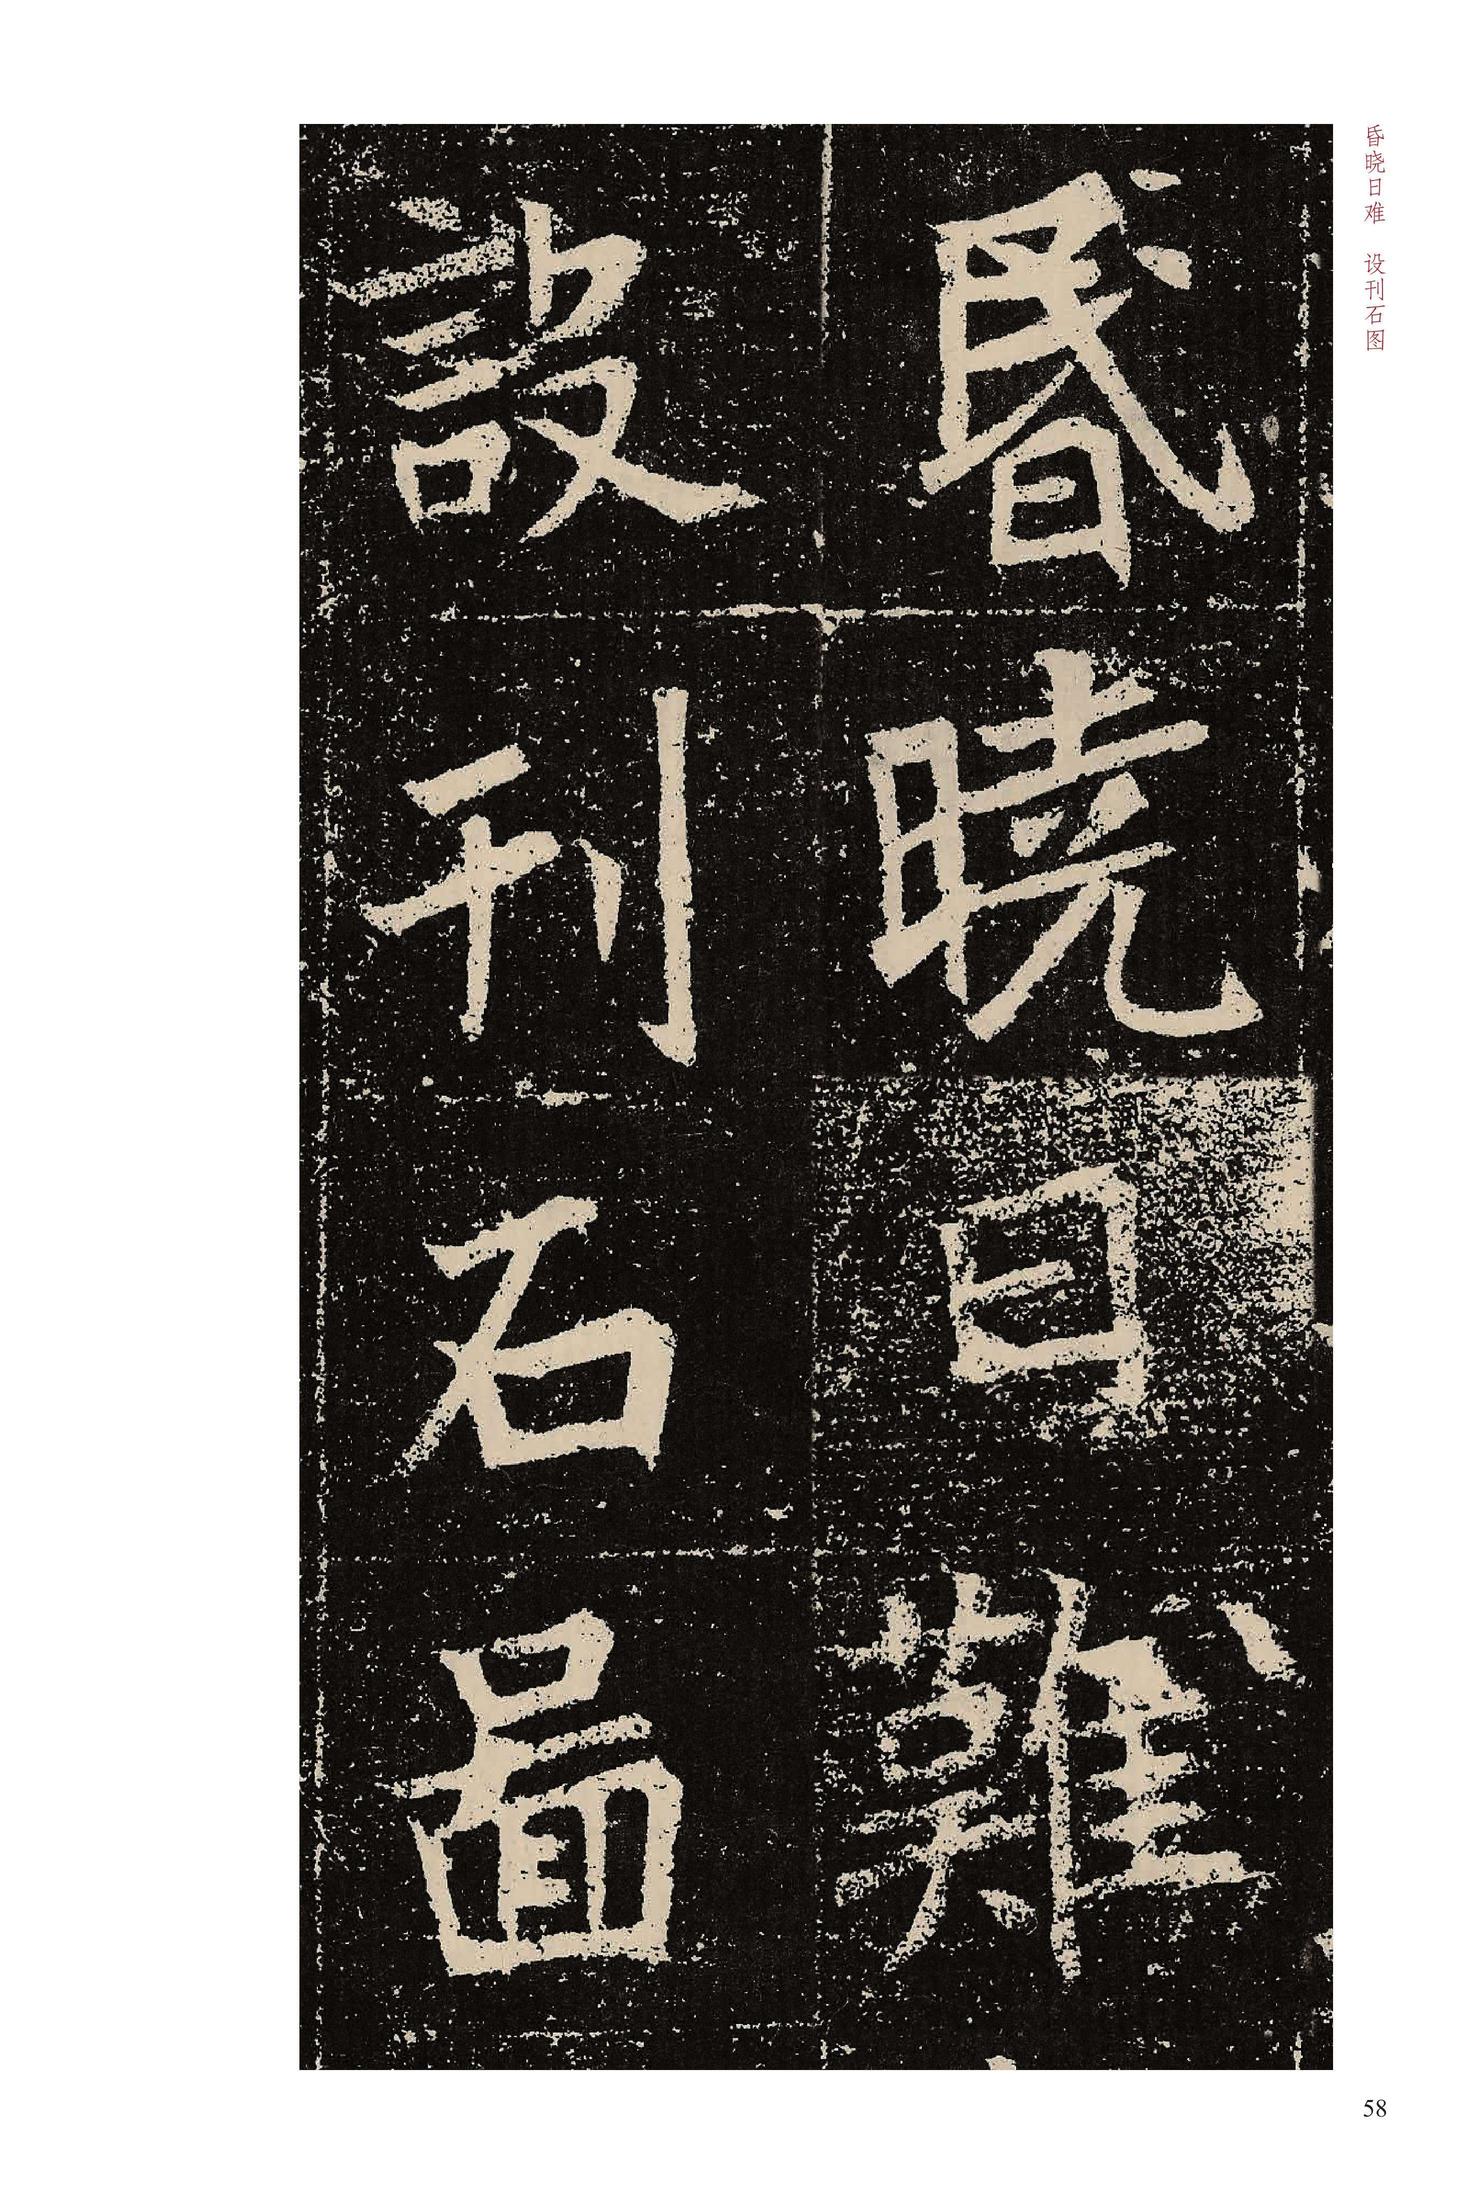 昬曉日難
設刊石啚
昏晓日难 设刊石图
58